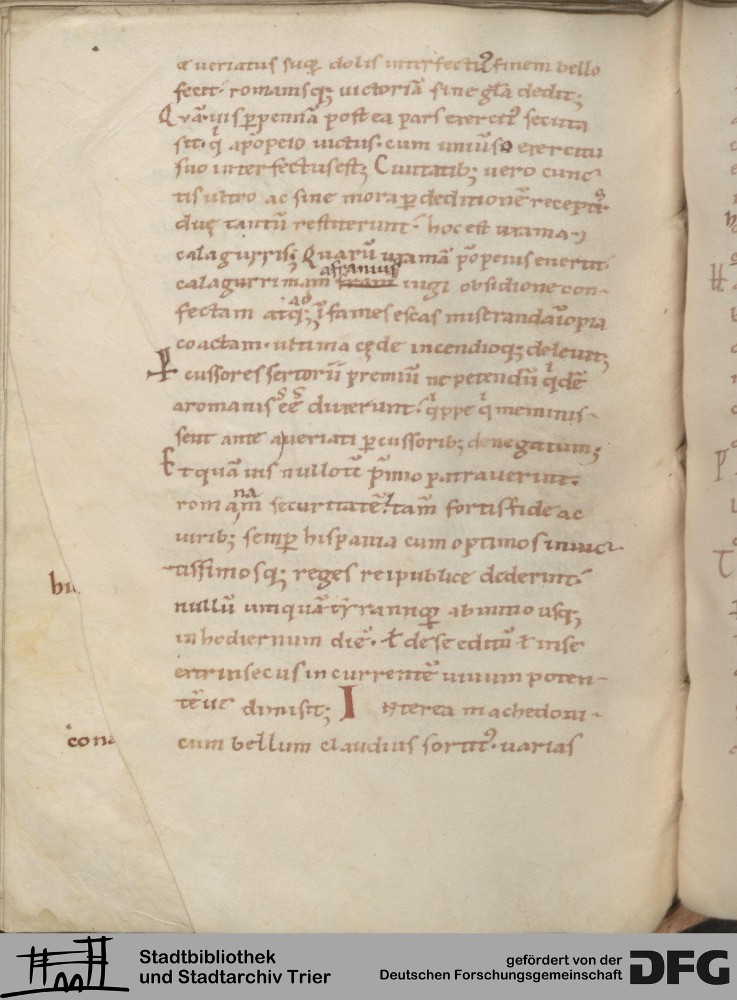 & ueriatus suorꝶ dolis interfectꝰ finem bello
fecit· romanisq; uictoriā sine gľa dedit;
Quāuis perpennā postea pars exercitꝰ secuta
sit· qͥ apōpeio uictus· cum uniuso exercitu
suo interfectus est; Ciuitatib; uero cunc
tis ultro ac sine mora ꝑ deditionē receptis·
duę tantū restiterunt· hoc est uxama·
calagurris; Quarū uxamā pōpeius euertit·
afranius
calagurrimam iugi obsidione con-
fectam atq; ad īfames escas miseranda īopia
coactam· ultima cęde incendioq; deleuit;
Ꝑcussores sertorii premiū ne petendū qͥdē
a romanis eē duxerunt· qͥppe qͥ meminis-
sent ante a ueriati ꝑcussorib; denegatum;
Et quāuis nullo tc̄ p̄mio patrauerint·
romanam securitatē· tam̄ fortis fide ac
uirib; semꝑ hispania cum optimos inuic
tissimosq; reges reipublice dederint·
nullū umquā tyrannorꝶ ab inicio usq;
in hodiernum diē· ł de se editū ł in se
extrinsecus incurrentē uiuum poten-
tēue dimisit; Interea machedoni-
cum bellum claudius sortitꝰ· uarias
bu
cona
Stadtbibliothek
und Stadtarchiv Trier
gefördert von der
Deutschen Forschungsgemeinschaft
DFG